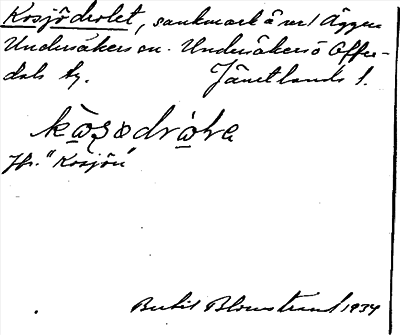 Kosjödrolet, sankmark ä ner! Äggen
Undersåkers sn. Undersåkers o Offer-
dals tg. Jämtlands l.
kòsodròla
Jfr. "Kosjön"
Bertil Blomstrand 1934